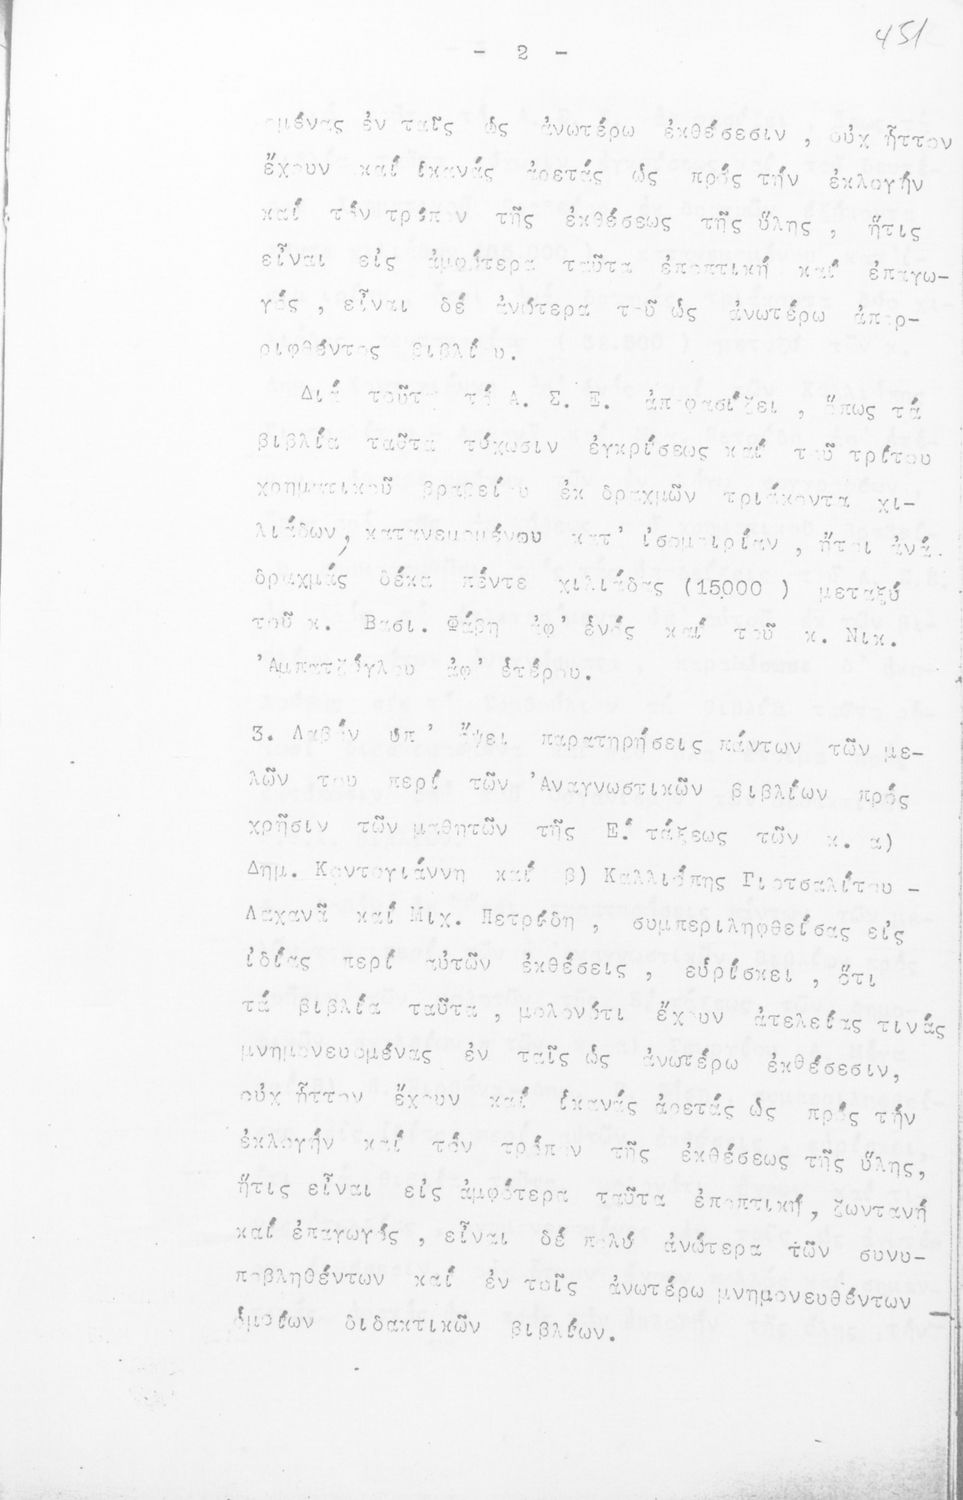 451
- 2 -
ομένας ἐν ταῖς ὡς ἀνωτέρω ἐκθέσεσιν , οὐχ ἧττον
ἔχουν καί ἱκανάς ἀρετάς ὡς πρός τήν ἐκλογήν
καί τόν τρόπον τῆς ἐκθέσεως τῆς ὕλης , ἥτις
εἶναι εἰς ἀμφότερα ταῦτα ἐποπτική καί ἐπαγω-
γός , εἶναι δέ ἀνώτερα τοῦ ὡς ἀνωτέρω ἀπορ-
ριφθέντος βιβλίου.
Διά τοῦτο τό Α. Σ. Ε. ἀποφασίζει , ὅπως τά
βιβλία ταῦτα τύχωσιν ἐγκρίσεως καί τοῦ τρίτου
χρηματικοῦ βραβείου ἐκ δραχμῶν τριάκοντα χι-
λιάδων, κατανεμομένου κατ' ἰσομοιρίαν , ἤτοι ἀνά
δραχμάς δέκα πέντε χιλιάδας (15000 ) μεταξύ
τοῦ κ. Βασι. Φάβη ἀφ' ἑνός καί τοῦ κ. Νικ.
'Αμπατζόγλου ἀφ' ἑτέρου.
3. Λαβόν ὑπ' ὄψει παρατηρήσεις πάντων τῶν με-
λῶν του περί τῶν 'Αναγνωστικῶν βιβλίων πρός
χρῆσιν τῶν μαθητῶν τῆς Ε΄. τάξεως τῶν κ. α)
Δημ. Κοντογιάννη καί β) Καλλιόπης Γιοτσαλίτου -
Λαχανᾶ καί Μιχ. Πετρίδη , συμπεριληφθείσας εἰς
ἰδίας περί αὐτῶν ἐκθέσεις , εὑρίσκει , ὅτι
τά βιβλία ταῦτα , μολονότι ἔχουν ἀτελείας τινάς
μνημονευομένας ἐν ταῖς ὡς ἀνωτέρω ἐκθέσεσιν,
οὐχ ἧττον ἔχουν καί ἱκανάς ἀρετάς ὡς πρός τήν
ἐκλογήν καί τόν τρόπον τῆς ἐκθέσεως τῆς ὕλης,
ἥτις εἶναι εἰς ἀμφότερα ταῦτα ἐποπτική, ζωντανή
καί ἐπαγωγός , εἶναι δέ πολύ ἀνώτερα τῶν συνυ-
ποβληθέντων καί ἐν τοῖς ἀνωτέρω μνημονευθέντων
ὁμοίων διδακτικῶν βιβλίων.